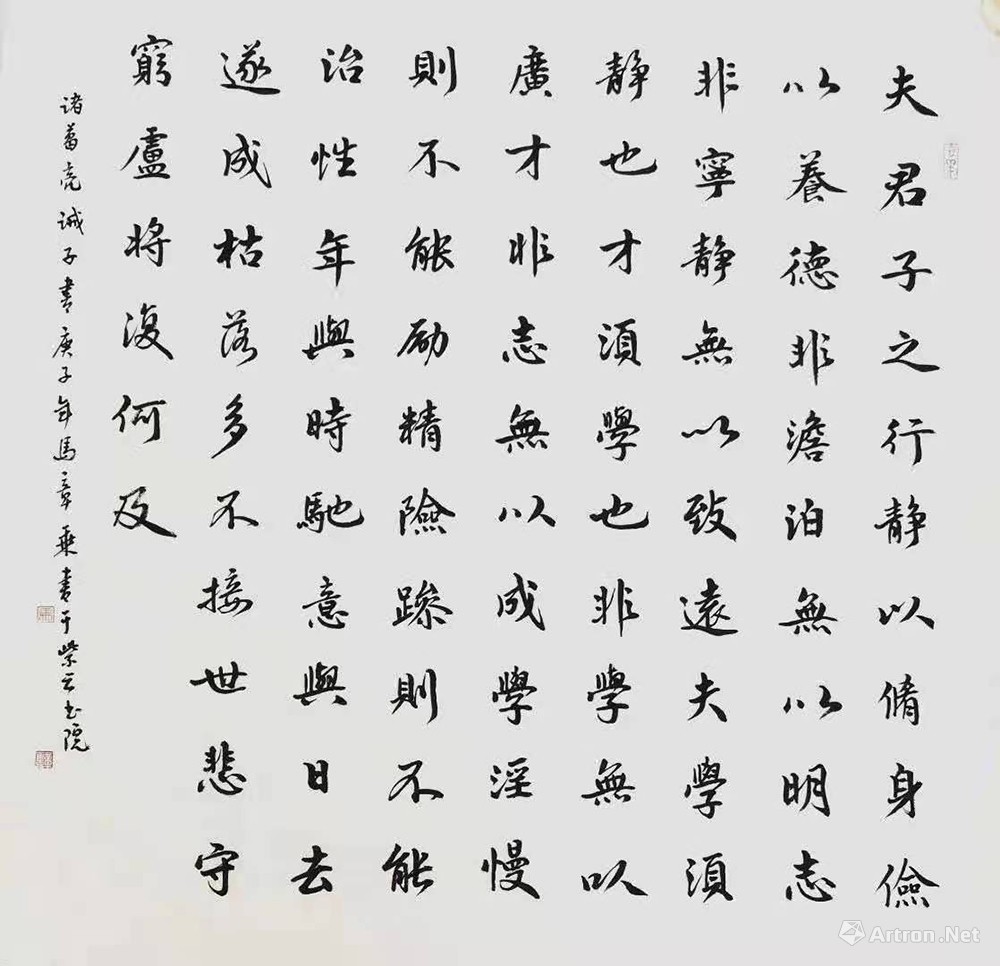 夫君子之行静以脩身儉
以養德非澹泊無以明志
非寧静無以致遠夫學須
静也才須學也非學無以
廣才非志無以成學淫慢
則不能励精險躁則不能
治性年與時馳意與日去
遂成枯落多不接世悲守
窮盧将復何及
诸葛亮诫子書庚子年馬章乘書于紫云书院
Artron.Net